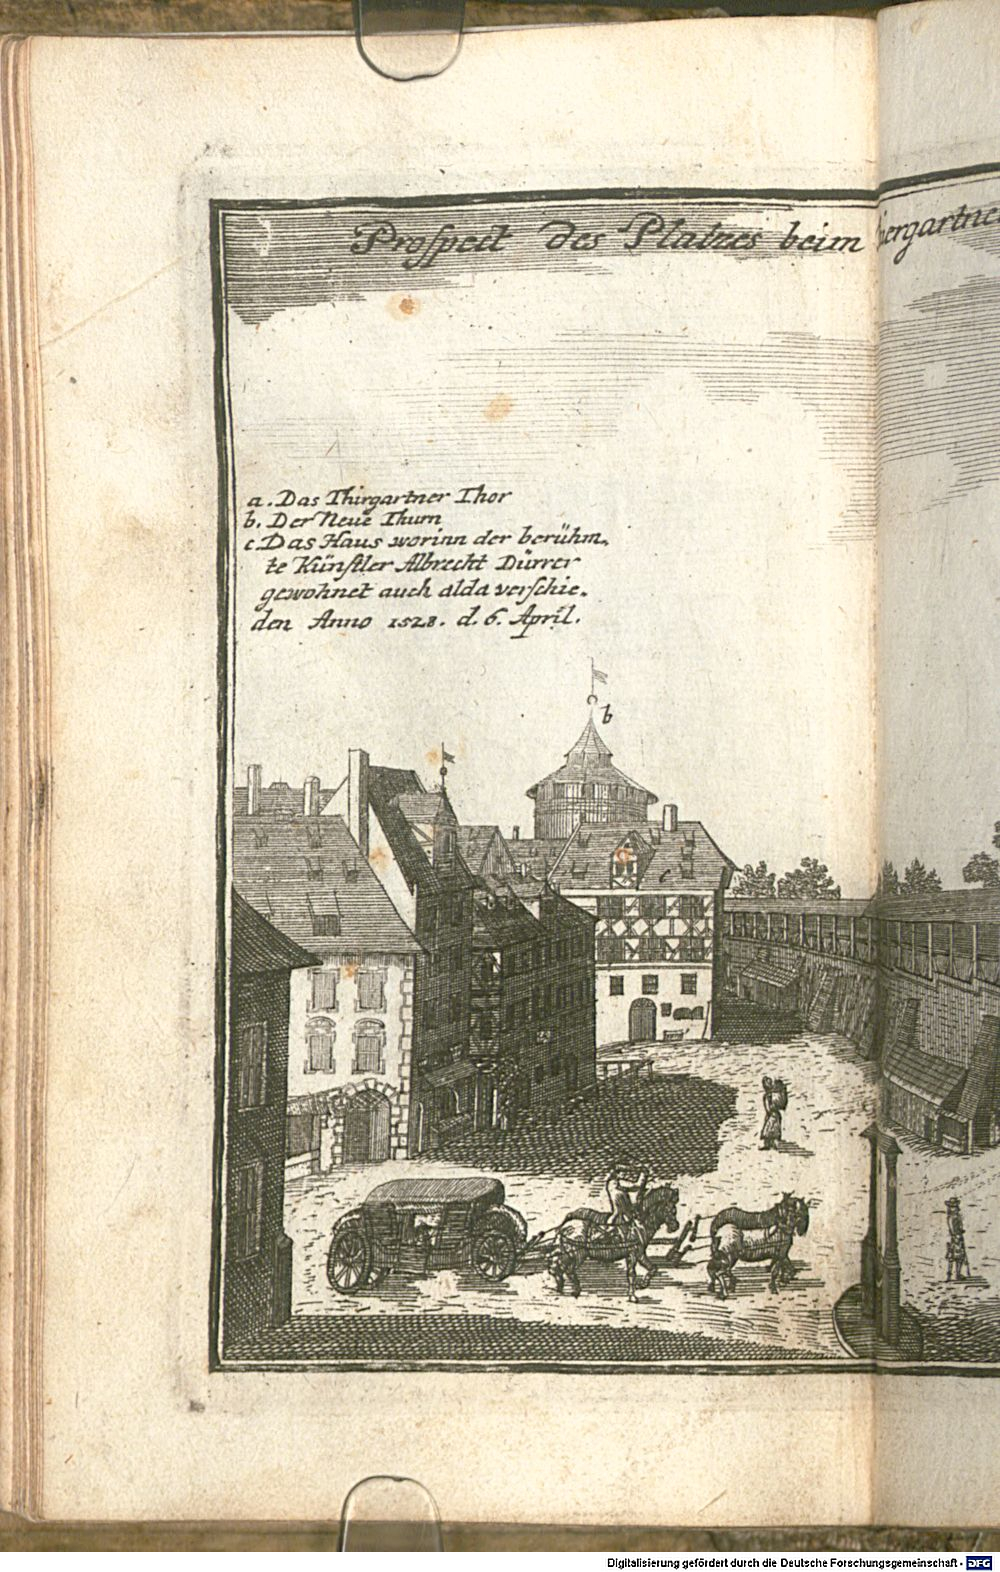 Prospect des Platzes beim
iergartne
a. Das Thirgartner Thor
b. Der Neüe Thurn
c. Das Haus worinn der berühm,
te Künstler Albrecht Dürrer
gewohnet auch alda verschie,
den Anno 1528. d. 6. April.
b
c
Digitalisierung gefördert durch die Deutsche Forschungsgemeinschaft - DFG